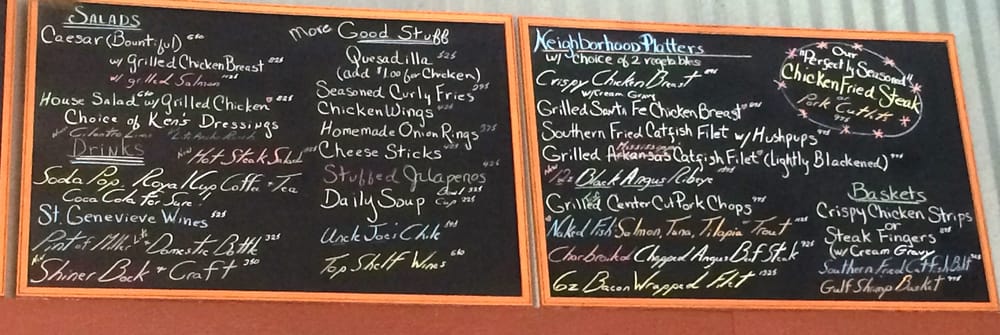 SALADS
Caesar (Bountiful)
w/ Grilled Chicken Breast
w/ grilled Salmon
House Salad w/ Grilled Chicken
Choice of Ken's Dressings
DRINKS
New Hot Steak Salad
Soda Pop, Royal Cup Coffee + Tea
Coca Cola For Sure!
St. Genevieve Wines 525
Pint of Milk + Domestic Bottle 325
Shiner Bock + Craft 350
more Good Stuff
Quesadilla 525
(add $1.00 for Chicken)
Seasoned Curly Fries
Chicken Wings
Homemade Onion Rings
Cheese Sticks
Stuffed Jalapenos
Daily Soup Bowl Cup
Uncle Joe's Chile
Top Shelf Wines
Neighborhood Platters
w/ choice of 2 vegetables
Crispy Chicken Breast
w/ Cream Gravy
Grilled Santa Fe Chicken Breast
Southern Fried Catfish Filet w/ Hushpups
Mississippi
Grilled Arkansas Catfish Filet (Lightly Blackened)
12z Black Angus Ribeye
Grilled Center Cut Pork Chops
Naked Fish Salmon, Tuna, Tilapia Trout
Charbroiled Chopped Angus Beef Steak
6z Bacon Wrapped Filet
Our
"Perfectly Seasoned"
Chicken Fried Steak
or
Pork Cutlets
Baskets
Crispy Chicken Strips
or
Steak Fingers
(w/ Cream Gravy)
Southern Fried Catfish Bskt
Gulf Shrimp Basket